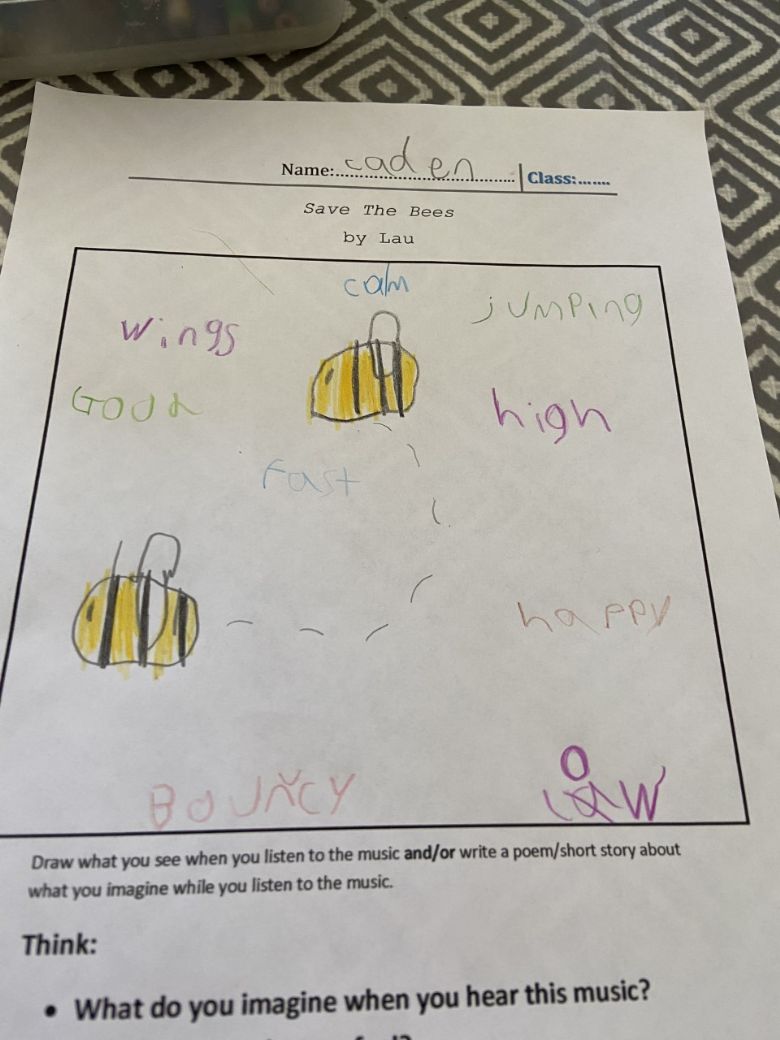 Name:........caden........ Class:.......
Save The Bees
by Lau
calm
jumping
wings
Good
high
Fast
happy
BOUNCY
Draw what you see when you listen to the music and/or write a poem/short story about
what you imagine while you listen to the music.
Think:
• What do you imagine when you hear this music?